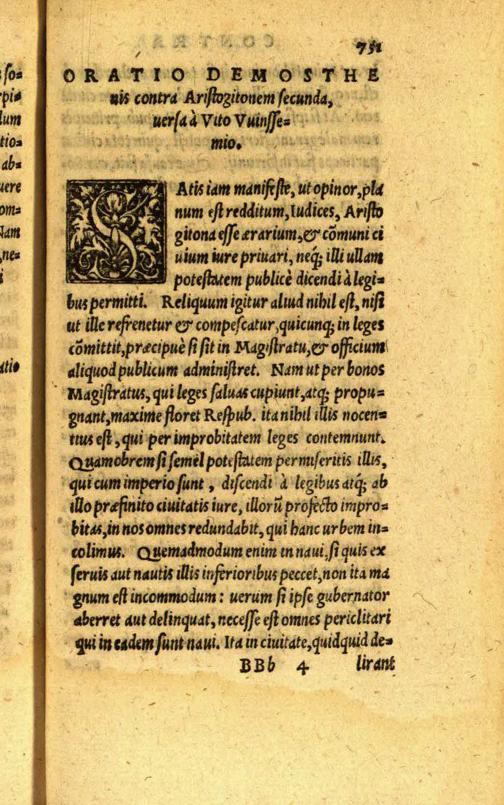 751
ORATIO DEMOSTHE
nis contra Aristogitonem secunda,
uersa à Vito Vuinsse=
mio.
SAtis iam manifeste, ut opinor, pla
num est redditum, Iudices, Aristo
gitona esse ærarium, & cōmuni ci
uium iure priuari, neq; illi ullam
potestatem publicè dicendi à legi=
bus permitti. Reliquum igitur aliud nihil est, nisi
ut ille refrenetur & compescatur, quicunq; in leges
cōmittit, præcipuè si sit in Magistratu, & officium
aliquod publicum administret. Nam ut per bonos
Magistratus, qui leges saluas cupiunt, atq; propu=
gnant, maxime floret Respub. ita nihil illis nocen=
tius est, qui per improbitatem leges contemnunt.
Quamobrem si semèl potestatem permiseritis illis,
qui cum imperio sunt, discendi à legibus atq; ab
illo præfinito ciuitatis iure, illorū profecto impro=
bitas, in nos omnes redundabit, qui hanc urbem in=
colimus. Quemadmodum enim in naui, si quis ex
seruis aut nautis illis inferioribus peccet, non ita ma
gnum est incommodum: uerum si ipse gubernator
aberret aut delinquat, necesse est omnes periclitari
qui in eadem sunt naui. Ita in ciuitate, quidquid de=
BBb 4 lirant